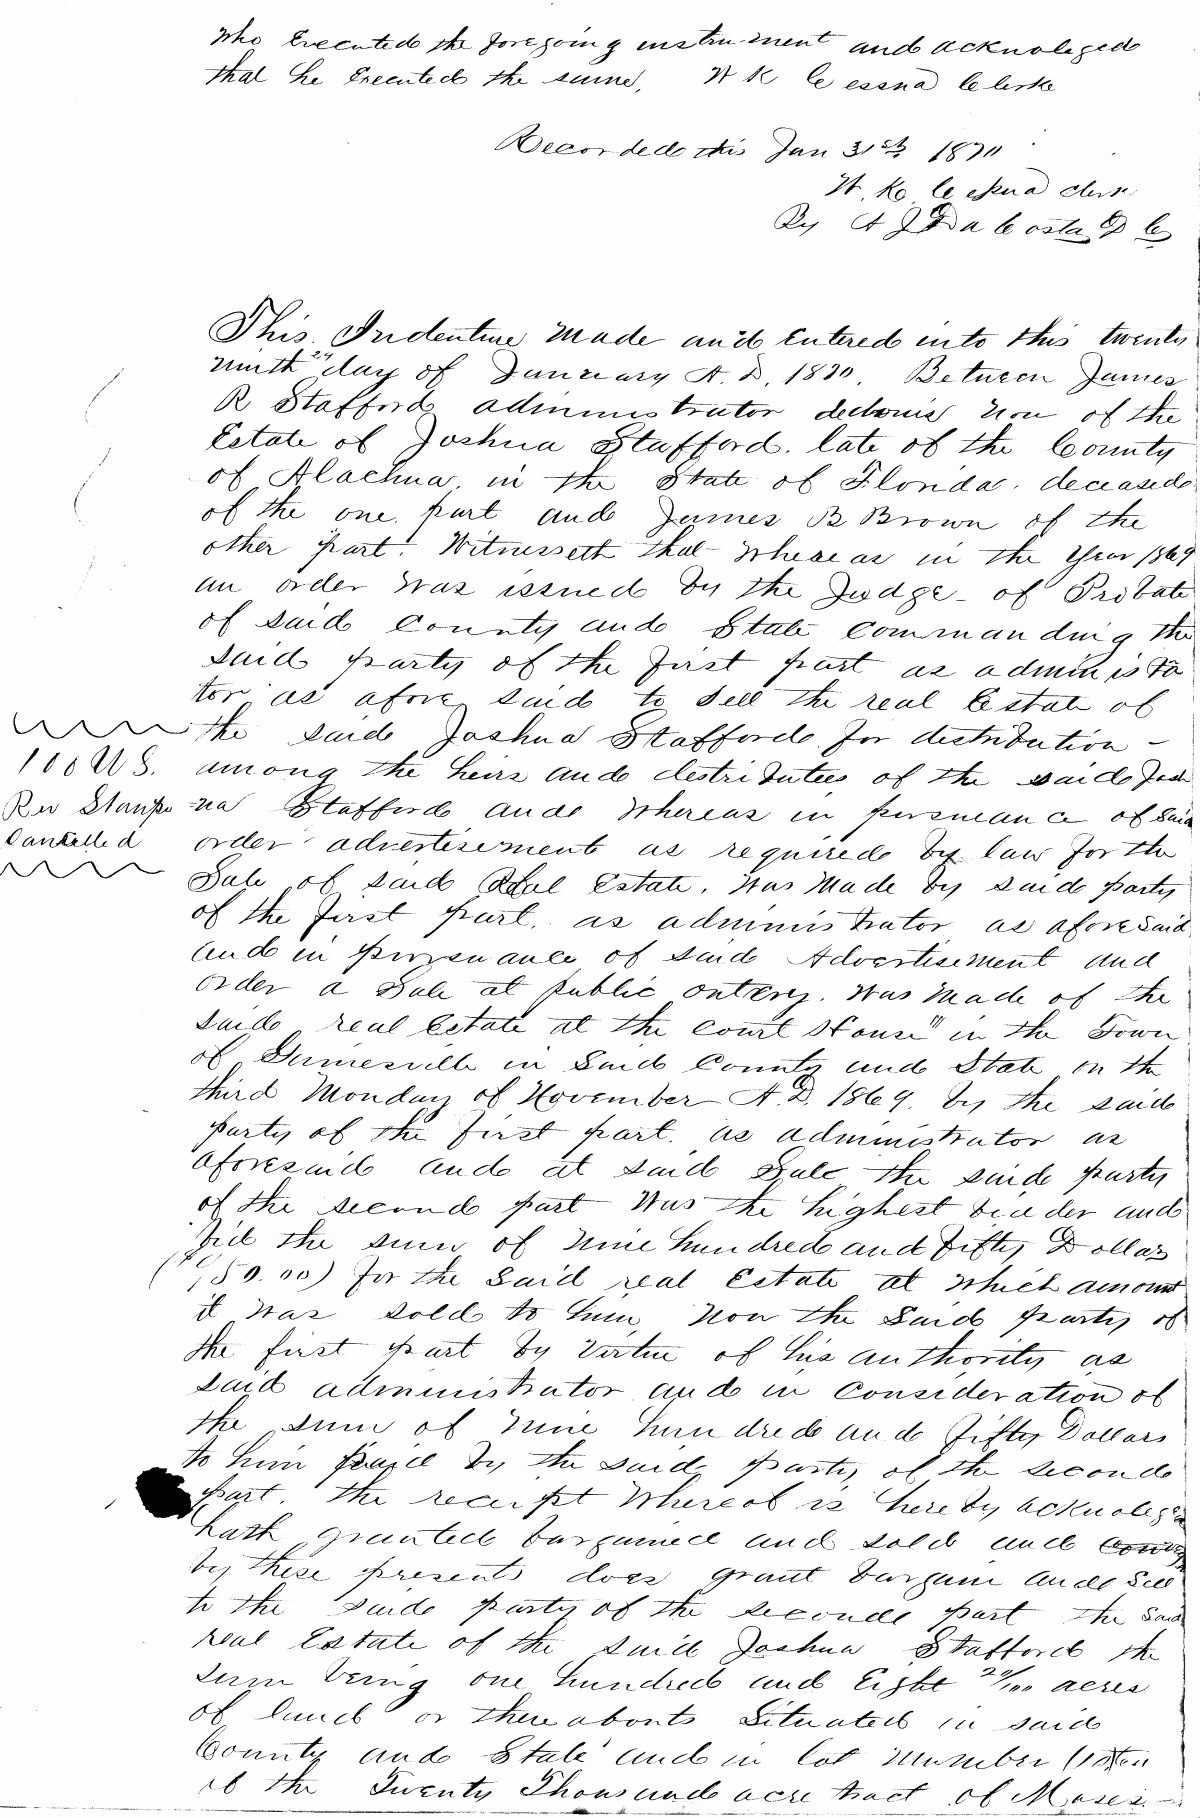 who Executed the foregoing instrument and acknoleged
that he Executed the same, W K Cessna Clerke
Recorded this Jan 31st 1870
W. K. Cessna Clerk
By A J Da Costa D C
This Indenture Made and Entered into this twenty
ninth day of January A. D. 1870. Between James
R Stafford administrator debonis non of the
Estate of Joshua Stafford. late of the County
of Alachua in the State of Florida. deceased
of the one part and James B Brown of the
other part. Witnesseth that Whereas in the Year 1869
an order was issued by the Judge of Probate
of said County and State Commanding the
said party of the first part as administra
tor as afore said to sell the real Estate of
the said Joshua Stafford for distribution -
100 U S.
among the heirs and destributees of the said Josh
Rev Stamps
ua Stafford and Whereas in persueance of Said
Cancelled
order advertisement as required by law for the
Sale of said Real Estate. was Made by said party
of the first part. as administrator as aforesaid
and in pursuance of said Advertisement and
order a Sale at public outcry. was Made of the
said real Estate at the Court House in the Town
of Gainesville in Said County and State on the
third Monday of November A. D. 1869. by the said
party of the first part. as administrator as
aforesaid and at said Sale the said party
of the second part Was the highest bidder and
bid the sum of Nine hundred and fifty Dollars
($950.00) for the Said real Estate at which amount
it was sold to him Now the Said party of
the first part by Virtue of his authority as
said administrator and in Consideration of
the sum of Nine hundred and fifty Dollars
to him paid by the said party of the second
part. the receipt Whereof is hereby acknoleged
hath granted bargained and sold and
by these presents does grant bargain and Sell
to the said party of the second part the said
real Estate of the said Joshua Stafford the
same being one hundred and Eight 20/100 acres
of land or thereabouts Situated in said
County and State and in lot Number
of the Twenty Thousand acre tract of Moses